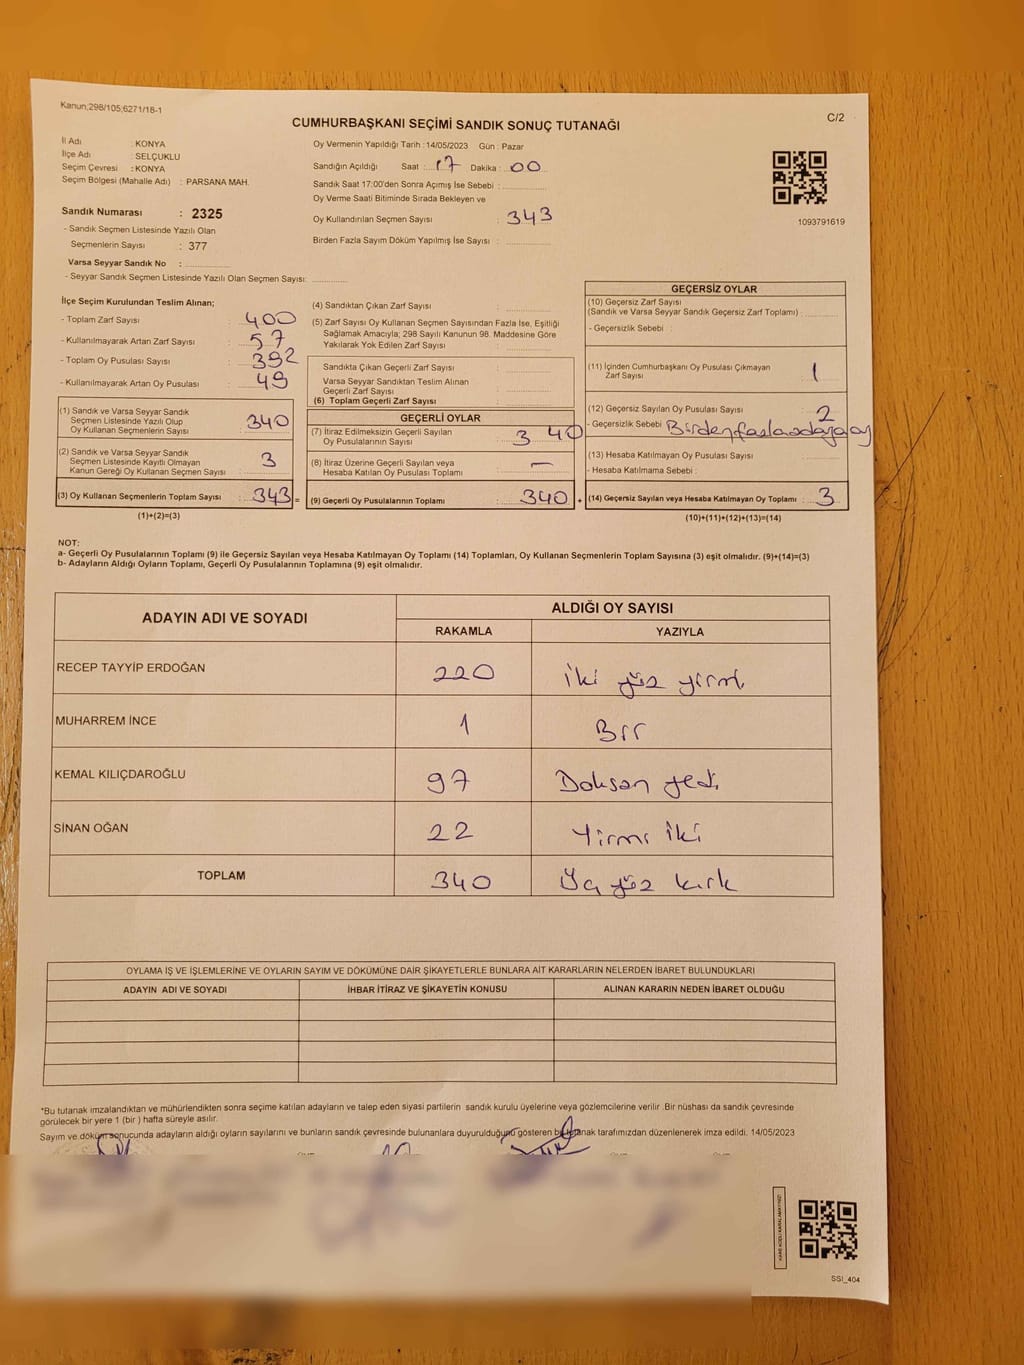 Kanun;298/105;6271/18-1
C/2
CUMHURBAŞKANI SEÇİMİ SANDIK SONUÇ TUTANAĞI
İl Adı : KONYA
İlçe Adı : SELÇUKLU
Seçim Çevresi : KONYA
Seçim Bölgesi (Mahalle Adı) : PARSANA MAH.
Sandık Numarası : 2325
- Sandık Seçmen Listesinde Yazılı Olan
Seçmenlerin Sayısı : 377
Varsa Seyyar Sandık No :
- Seyyar Sandık Seçmen Listesinde Yazılı Olan Seçmen Sayısı:
Oy Vermenin Yapıldığı Tarih : 14/05/2023 Gün : Pazar
Sandığın Açıldığı Saat : 17 Dakika : 00
Sandık Saat 17:00'den Sonra Açımış İse Sebebi :
Oy Verme Saati Bitiminde Sırada Bekleyen ve
Oy Kullandırılan Seçmen Sayısı : 343
Birden Fazla Sayım Döküm Yapılmış İse Sayısı :
1093791619
İlçe Seçim Kurulundan Teslim Alınan;
- Toplam Zarf Sayısı : 400
- Kullanılmayarak Artan Zarf Sayısı : 57
- Toplam Oy Pusulası Sayısı : 392
- Kullanılmayarak Artan Oy Pusulası : 49
(1) Sandık ve Varsa Seyyar Sandık
Seçmen Listesinde Yazılı Olup
Oy Kullanan Seçmenlerin Sayısı : 340
(2) Sandık ve Varsa Seyyar Sandık
Seçmen Listesinde Kayıtlı Olmayan
Kanun Gereği Oy Kullanan Seçmen Sayısı : 3
(3) Oy Kullanan Seçmenlerin Toplam Sayısı : 343 =
(1)+(2)=(3)
(4) Sandıktan Çıkan Zarf Sayısı :
(5) Zarf Sayısı Oy Kullanan Seçmen Sayısından Fazla İse, Eşitliği
Sağlamak Amacıyla; 298 Sayılı Kanunun 98. Maddesine Göre
Yakılarak Yok Edilen Zarf Sayısı :
Sandıkta Çıkan Geçerli Zarf Sayısı :
Varsa Seyyar Sandıktan Teslim Alınan
Geçerli Zarf Sayısı :
(6) Toplam Geçerli Zarf Sayısı :
GEÇERLİ OYLAR
(7) İtiraz Edilmeksizin Geçerli Sayılan
Oy Pusulasının Sayısı : 340
(8) İtiraz Üzerine Geçerli Sayılan veya
Hesaba Katılan Oy Pusulası Toplamı : —
(9) Geçerli Oy Pusulalarının Toplamı : 340 +
GEÇERSİZ OYLAR
(10) Geçersiz Zarf Sayısı
(Sandık ve Varsa Seyyar Sandık Geçersiz Zarf Toplamı) :
- Geçersizlik Sebebi :
(11) İçinden Cumhurbaşkanı Oy Pusulası Çıkmayan
Zarf Sayısı : 1
(12) Geçersiz Sayılan Oy Pusulası Sayısı : 2
- Geçersizlik Sebebi : Birden fazla adaya oy
(13) Hesaba Katılmayan Oy Sayısı :
- Hesaba Katılmama Sebebi :
(14) Geçersiz Sayılan veya Hesaba Katılmayan Oy Toplamı : 3
(10)+(11)+(12)+(13)=(14)
NOT:
a- Geçerli Oy Pusulalarının Toplamı (9) ile Geçersiz Sayılan veya Hesaba Katılmayan Oy Toplamı (14) Toplamları, Oy Kullanan Seçmenlerin Toplam Sayısına (3) eşit olmalıdır. (9)+(14)=(3)
b- Adayların Aldığı Oyların Toplamı, Geçerli Oy Pusulalarının Toplamına (9) eşit olmalıdır.
ADAYIN ADI VE SOYADI
ALDIĞI OY SAYISI
RAKAMLA YAZIYLA
RECEP TAYYİP ERDOĞAN 220 iki yüz yirmi
MUHARREM İNCE 1 Bir
KEMAL KILIÇDAROĞLU 97 Doksan yedi
SİNAN OĞAN 22 Yirmi iki
TOPLAM 340 Üç yüz kırk
OYLAMA İŞ VE İŞLEMLERİNE VE OYLARIN SAYIM VE DÖKÜMÜNE DAİR ŞİKAYETLERLE BUNLARA AİT KARARLARIN NELERDEN İBARET BULUNDUKLARI
ADAYIN ADI VE SOYADI İHBAR İTİRAZ VE ŞİKAYETİN KONUSU ALINAN KARARIN NEDEN İBARET OLDUĞU
*Bu tutanak imzalandıktan ve mühürlendikten sonra seçime katılan adayların ve talep eden siyasi partilerin sandık kurulu üyelerine veya gözlemcilerine verilir .Bir nüshası da sandık çevresinde
görülecek bir yere 1 (bir ) hafta süreyle asılır.
Sayım ve döküm sonucunda adayların aldığı oyların sayılarını ve bunların sandık çevresinde bulunanlara duyurulduğunu gösteren bu tutanak tarafımızdan düzenlenerek imza edildi. 14/05/2023
KARE KODU KARALAMAYINIZ!
SSI_404